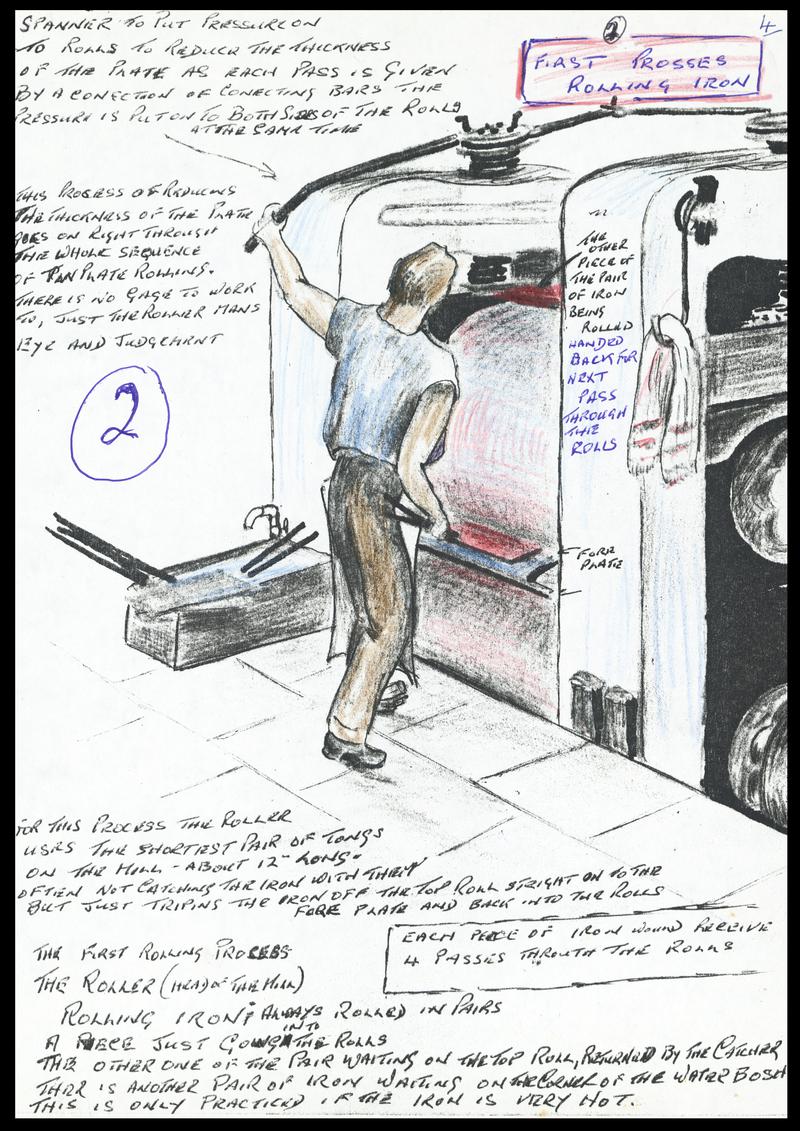 4
2
FIRST PROSSES
ROLLING IRON
SPANNER TO PUT PRESSURE ON
TO ROLLS TO REDUCE THE THICKNESS
OF THE PLATE AS EACH PASS IS GIVEN
BY A CONECTION OF CONECTING BARS THE
PRESSURE IS PUT ON TO BOTH SIDES OF THE ROLLS
AT THE SAME TIME
THIS PROCESS OF REDUCING
THE THICKNESS OF THE PLATE
GOES ON RIGHT THROUGH
THE WHOLE SEQUENCE
OF TINPLATE ROLLING.
THERE IS NO GAGE TO WORK
TO, JUST THE ROLLER MANS
EYE AND JUDGEMENT
2
THE
OTHER
PIECE OF
THE PAIR
OF IRON
BEING
ROLLED
HANDED
BACK FOR
NEXT
PASS
THROUGH
THE
ROLLS
FORE
PLATE
FOR THIS PROCESS THE ROLLER
USES THE SHORTEST PAIR OF TONGS
ON THE MILL - ABOUT 12" LONG.
OFTEN NOT CATCHING THE IRON WITH THEM
BUT JUST TRIPING THE IRON OFF THE TOP ROLL STRIGHT ON TO THE
FORE PLATE AND BACK INTO THE ROLLS
EACH PIECE OF IRON WOUND RECEIVE
4 PASSES THROUTH THE ROLLS
THE FIRST ROLLING PROCESS
THE ROLLER (HEAD OF THE MILL)
ROLLING IRON, ALWAYS ROLLED IN PAIRS
A PIECE JUST GOING INTO THE ROLLS
THE OTHER ONE OF THE PAIR WAITING ON THE TOP ROLL, RETURNED BY THE CATCHER
THER IS ANOTHER PAIR OF IRON WAITING ON THE CORNER OF THE WATER BOSH
THIS IS ONLY PRACTICED IF THE IRON IS VERY HOT.